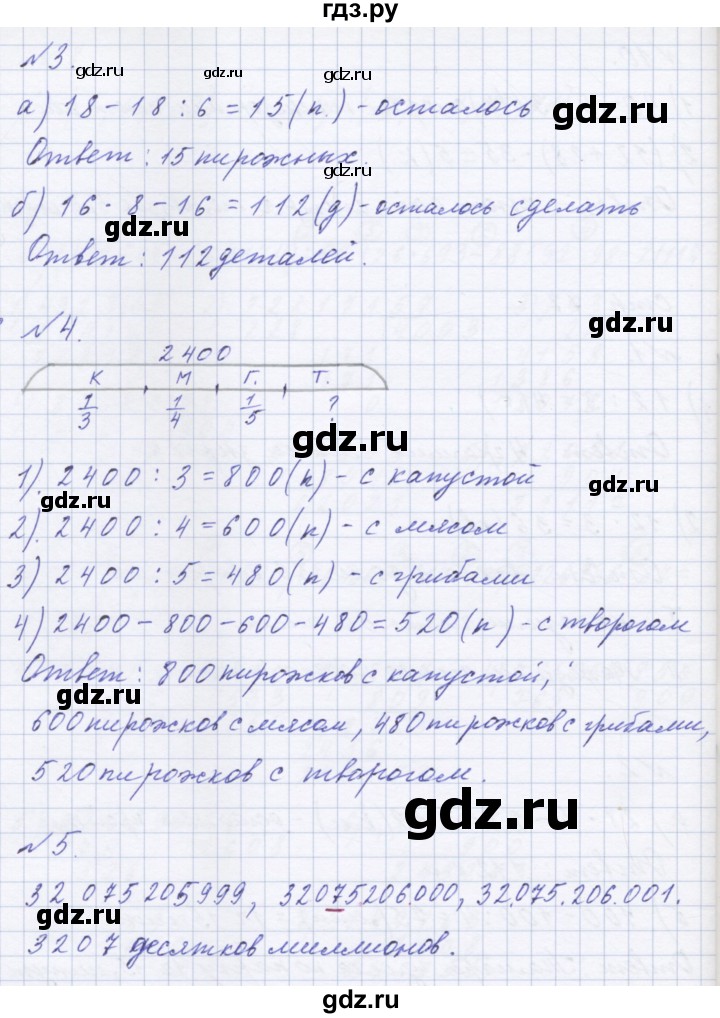 гдз.ру
№3.
gdz.ru
gdz.ru
gdz.ru
а) 18 - 18 : 6 = 15 (п.) - осталось
gdz.ru
Ответ: 15 пирожных.
gdz.ru
б) 16 · 8 - 16 = 112 (д) - осталось сделать
gdz.ru
Ответ: 112 деталей.
gdz.ru
№4.
2400
К М Г. Т.
1/3 1/4 1/5 ?
gdz.ru
1) 2400 : 3 = 800 (п) - с капустой
gdz.ru
gdz.ru
2) 2400 : 4 = 600 (п) - с мясом
3) 2400 : 5 = 480 (п) - с грибами
4) 2400 - 800 - 600 - 480 = 520 (п) - с творогом
gdz.ru
Ответ: 800 пирожков с капустой,
gdz.ru
600 пирожков с мясом, 480 пирожков с грибами,
520 пирожков с творогом.
gdz.ru
№5.
gdz.ru
32 075 205 999, 32075206.000, 32.075.206.001.
3207 десятков миллионов.
gdz.ru
gdz.ru